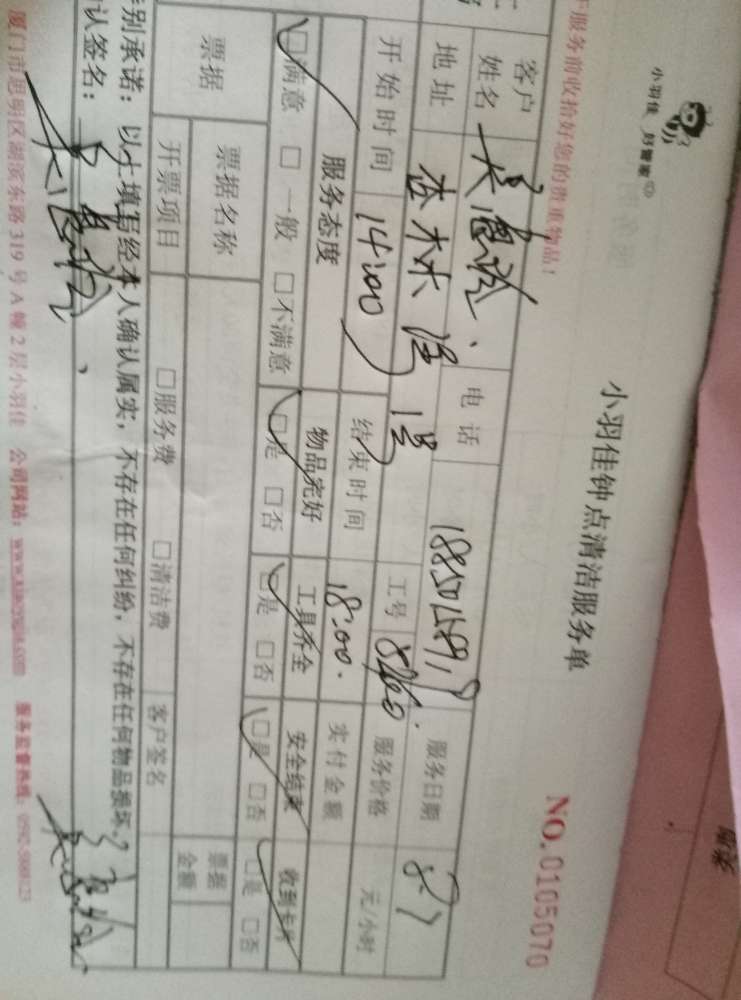 小羽佳 好管家
小羽佳钟点清洁服务单
NO.0105070
服务前收拾好您的贵重物品！
客户姓名 电话 服务日期 8.7
地址 杏林 工号 服务价格 元/小时
开始时间 14:00 结束时间 18:00. 实付金额
服务态度 物品完好 工具齐全 安全结束 收到卡片
□满意 □一般 □不满意 □是 □否 □是 □否 □是 □否 □是 □否
票据 票据名称 票据金额
开票项目 □服务费 □清洁费 客户签名
别承诺：以上填写经本人确认属实，不存在任何纠纷，不存在任何物品损坏。
认签名：
厦门市思明区湖滨东路319号A幢2层小羽佳 公司网站：www.xiaoyujia.com 服务监督热线：0592-5088123